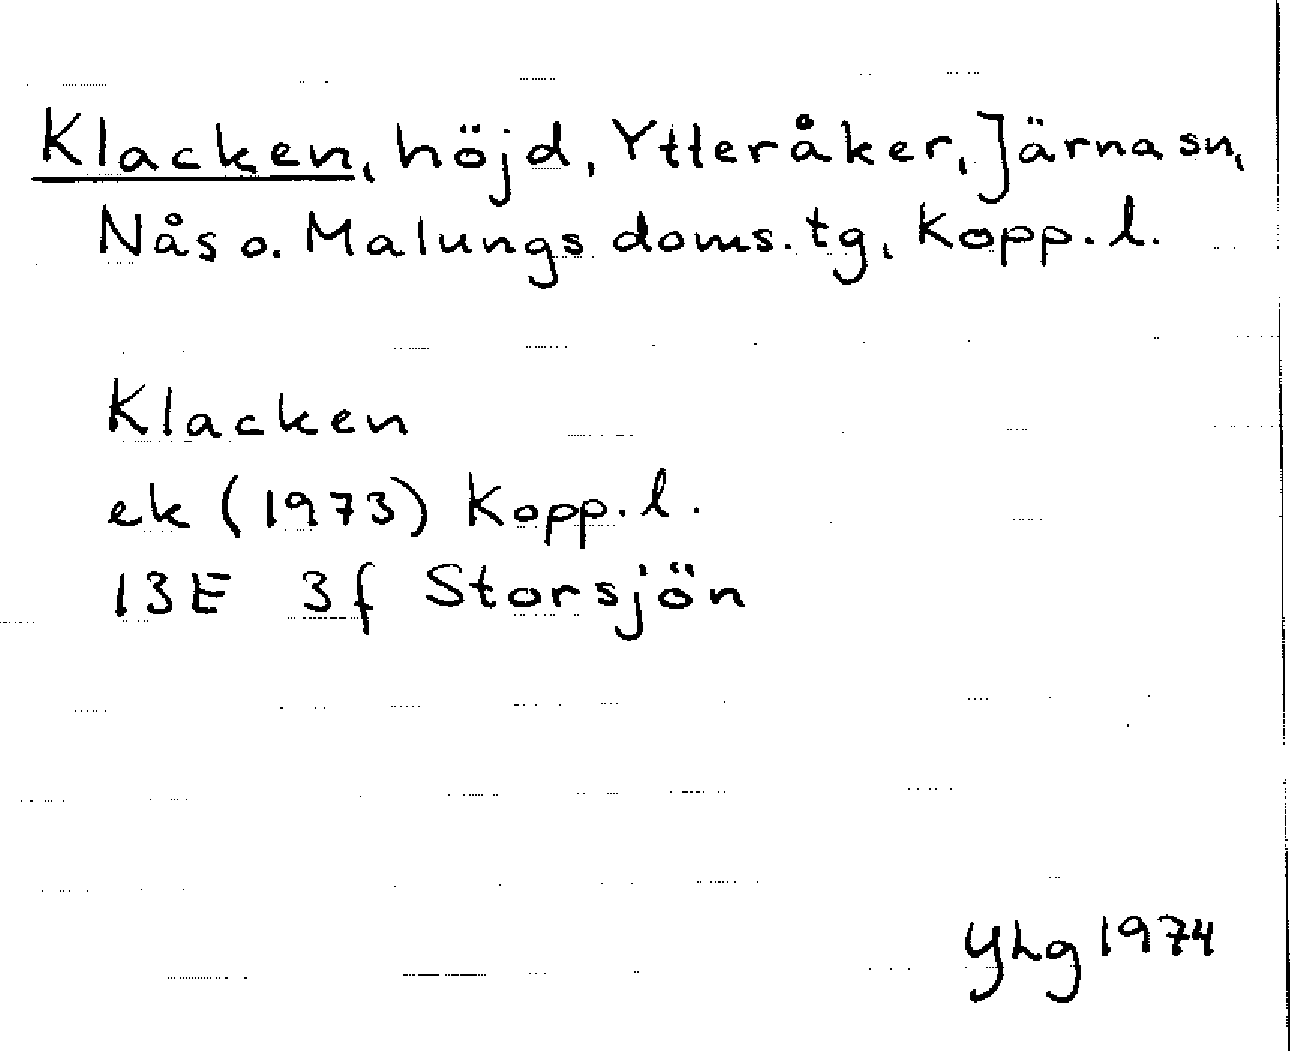 Klacken, höjd, Ytteråker, Järna sn,
Nås o. Malungs doms. tg, Kopp. l.
Klacken
ek (1973) Kopp. l.
13E 3f Storsjön
YHg 1974